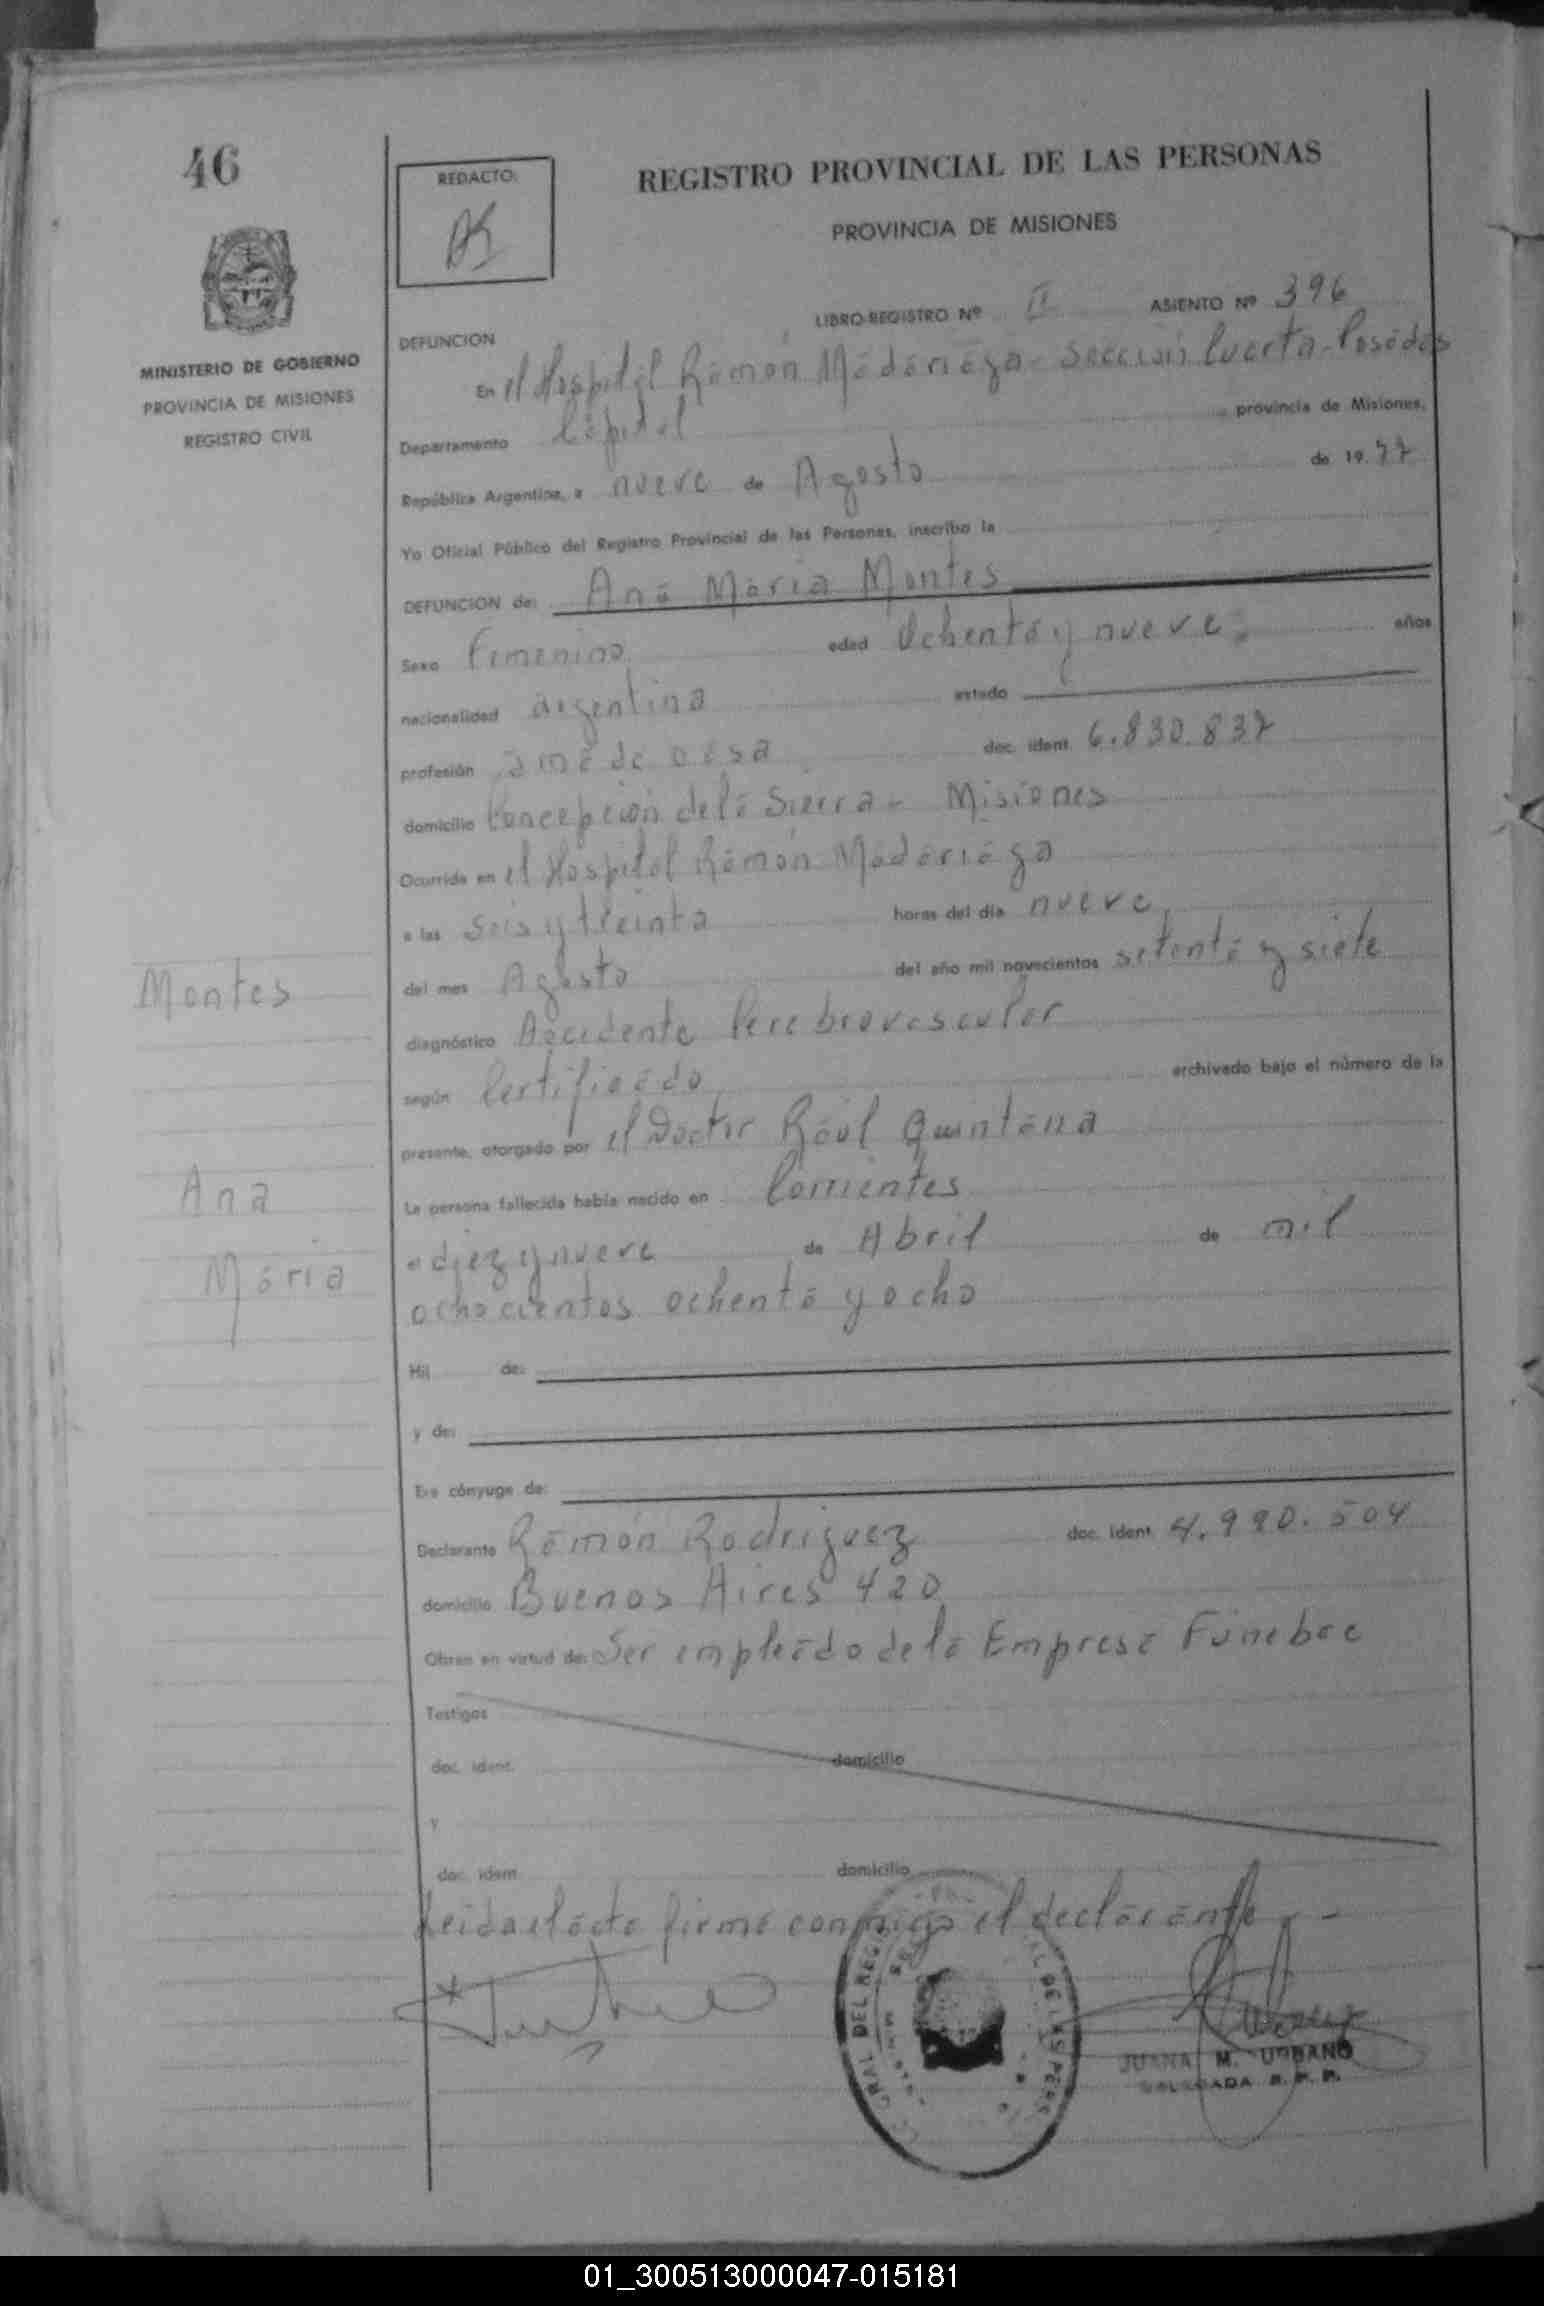 46
REDACTO:
REGISTRO PROVINCIAL DE LAS PERSONAS
PROVINCIA DE MISIONES
MINISTERIO DE GOBIERNO
PROVINCIA DE MISIONES
REGISTRO CIVIL
LIBRO-REGISTRO Nº II ASIENTO Nº 396
DEFUNCION
En el Hospital Ramón Madariaga - Sección Cuarta - Posadas
Departamento Capital provincia de Misiones,
República Argentina, a nueve de Agosto de 1977
Yo Oficial Público del Registro Provincial de las Personas, inscribo la
DEFUNCION de: Ana Maria Montes
Sexo Femenino edad Ochenta y nueve años
nacionalidad argentina estado
profesión ama de casa doc. ident. 6.830.837
domicilio Concepción de la Sierra - Misiones
Ocurrida en el Hospital Ramón Madariaga
a las seis y treinta horas del día nueve
del mes Agosto del año mil novecientos setenta y siete
diagnóstico Accidente Cerebrovascular
según Certificado archivado bajo el número de la
presente, otorgado por el Doctor Raúl Quintana
La persona fallecida había nacido en Corrientes
a diez y nueve de Abril de mil
ochocientos ochenta y ocho
Hij de:
y de:
Era cónyuge de:
Declarante Ramón Rodriguez doc. ident. 4.990.504
domicilio Buenos Aires 420
Obran en virtud de: Ser empleado de la Empresa Fúnebre
Testigos
doc. ident. domicilio
y
doc. ident. domicilio
Leida el acta firma conmigo el declarante. -
Montes
Ana
Maria
JUANA M. URBANO
DELEGADA R. P. P.
01_300513000047-015181